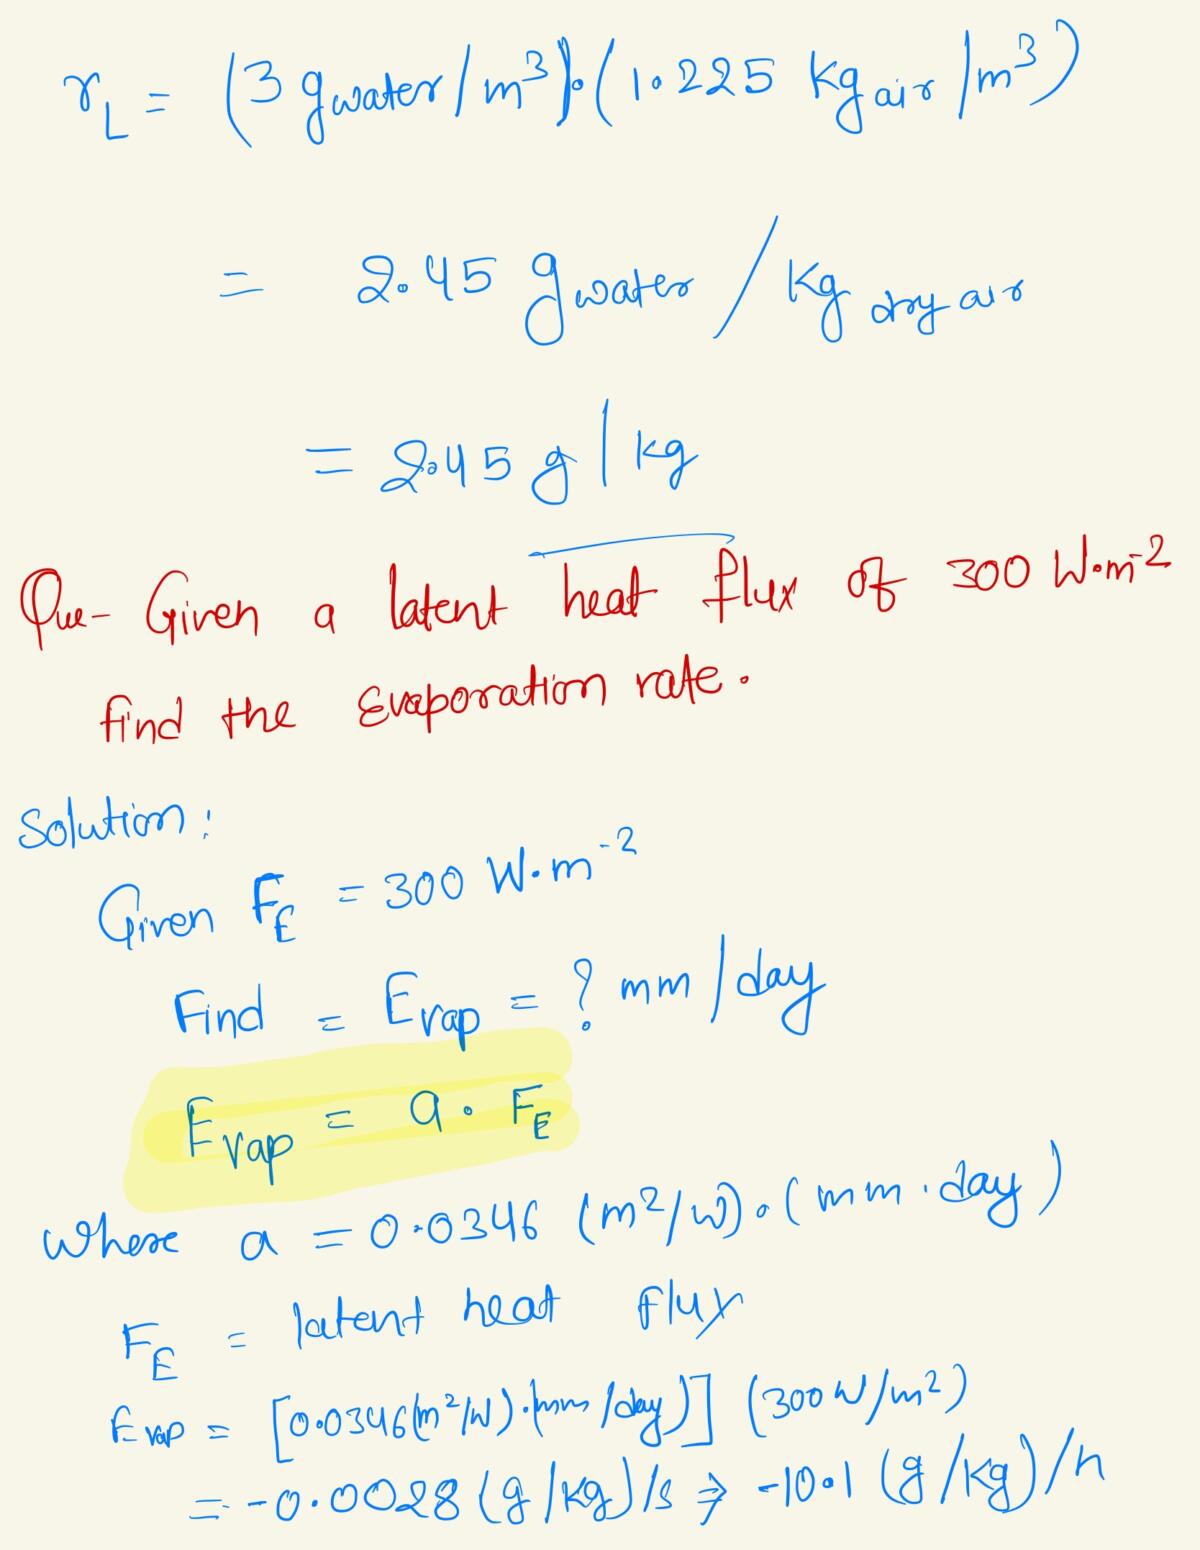 r_L = (3 g water/m³)·(1.225 kg air/m³)
= 2.45 g water / kg dry air
= 2.45 g/kg
Que- Given a latent heat flux of 300 W·m⁻²
find the Evaporation rate.
Solution:
Given F_E = 300 W·m⁻²
Find = Evap = ? mm/day
Evap = a · F_E
where a = 0.0346 (m²/W)·(mm·day)
F_E = latent heat flux
Evap = [0.0346(m²/W)·(mm/day)] (300 W/m²)
= -0.0028 (g/kg)/s ⇒ -10.1 (g/kg)/h